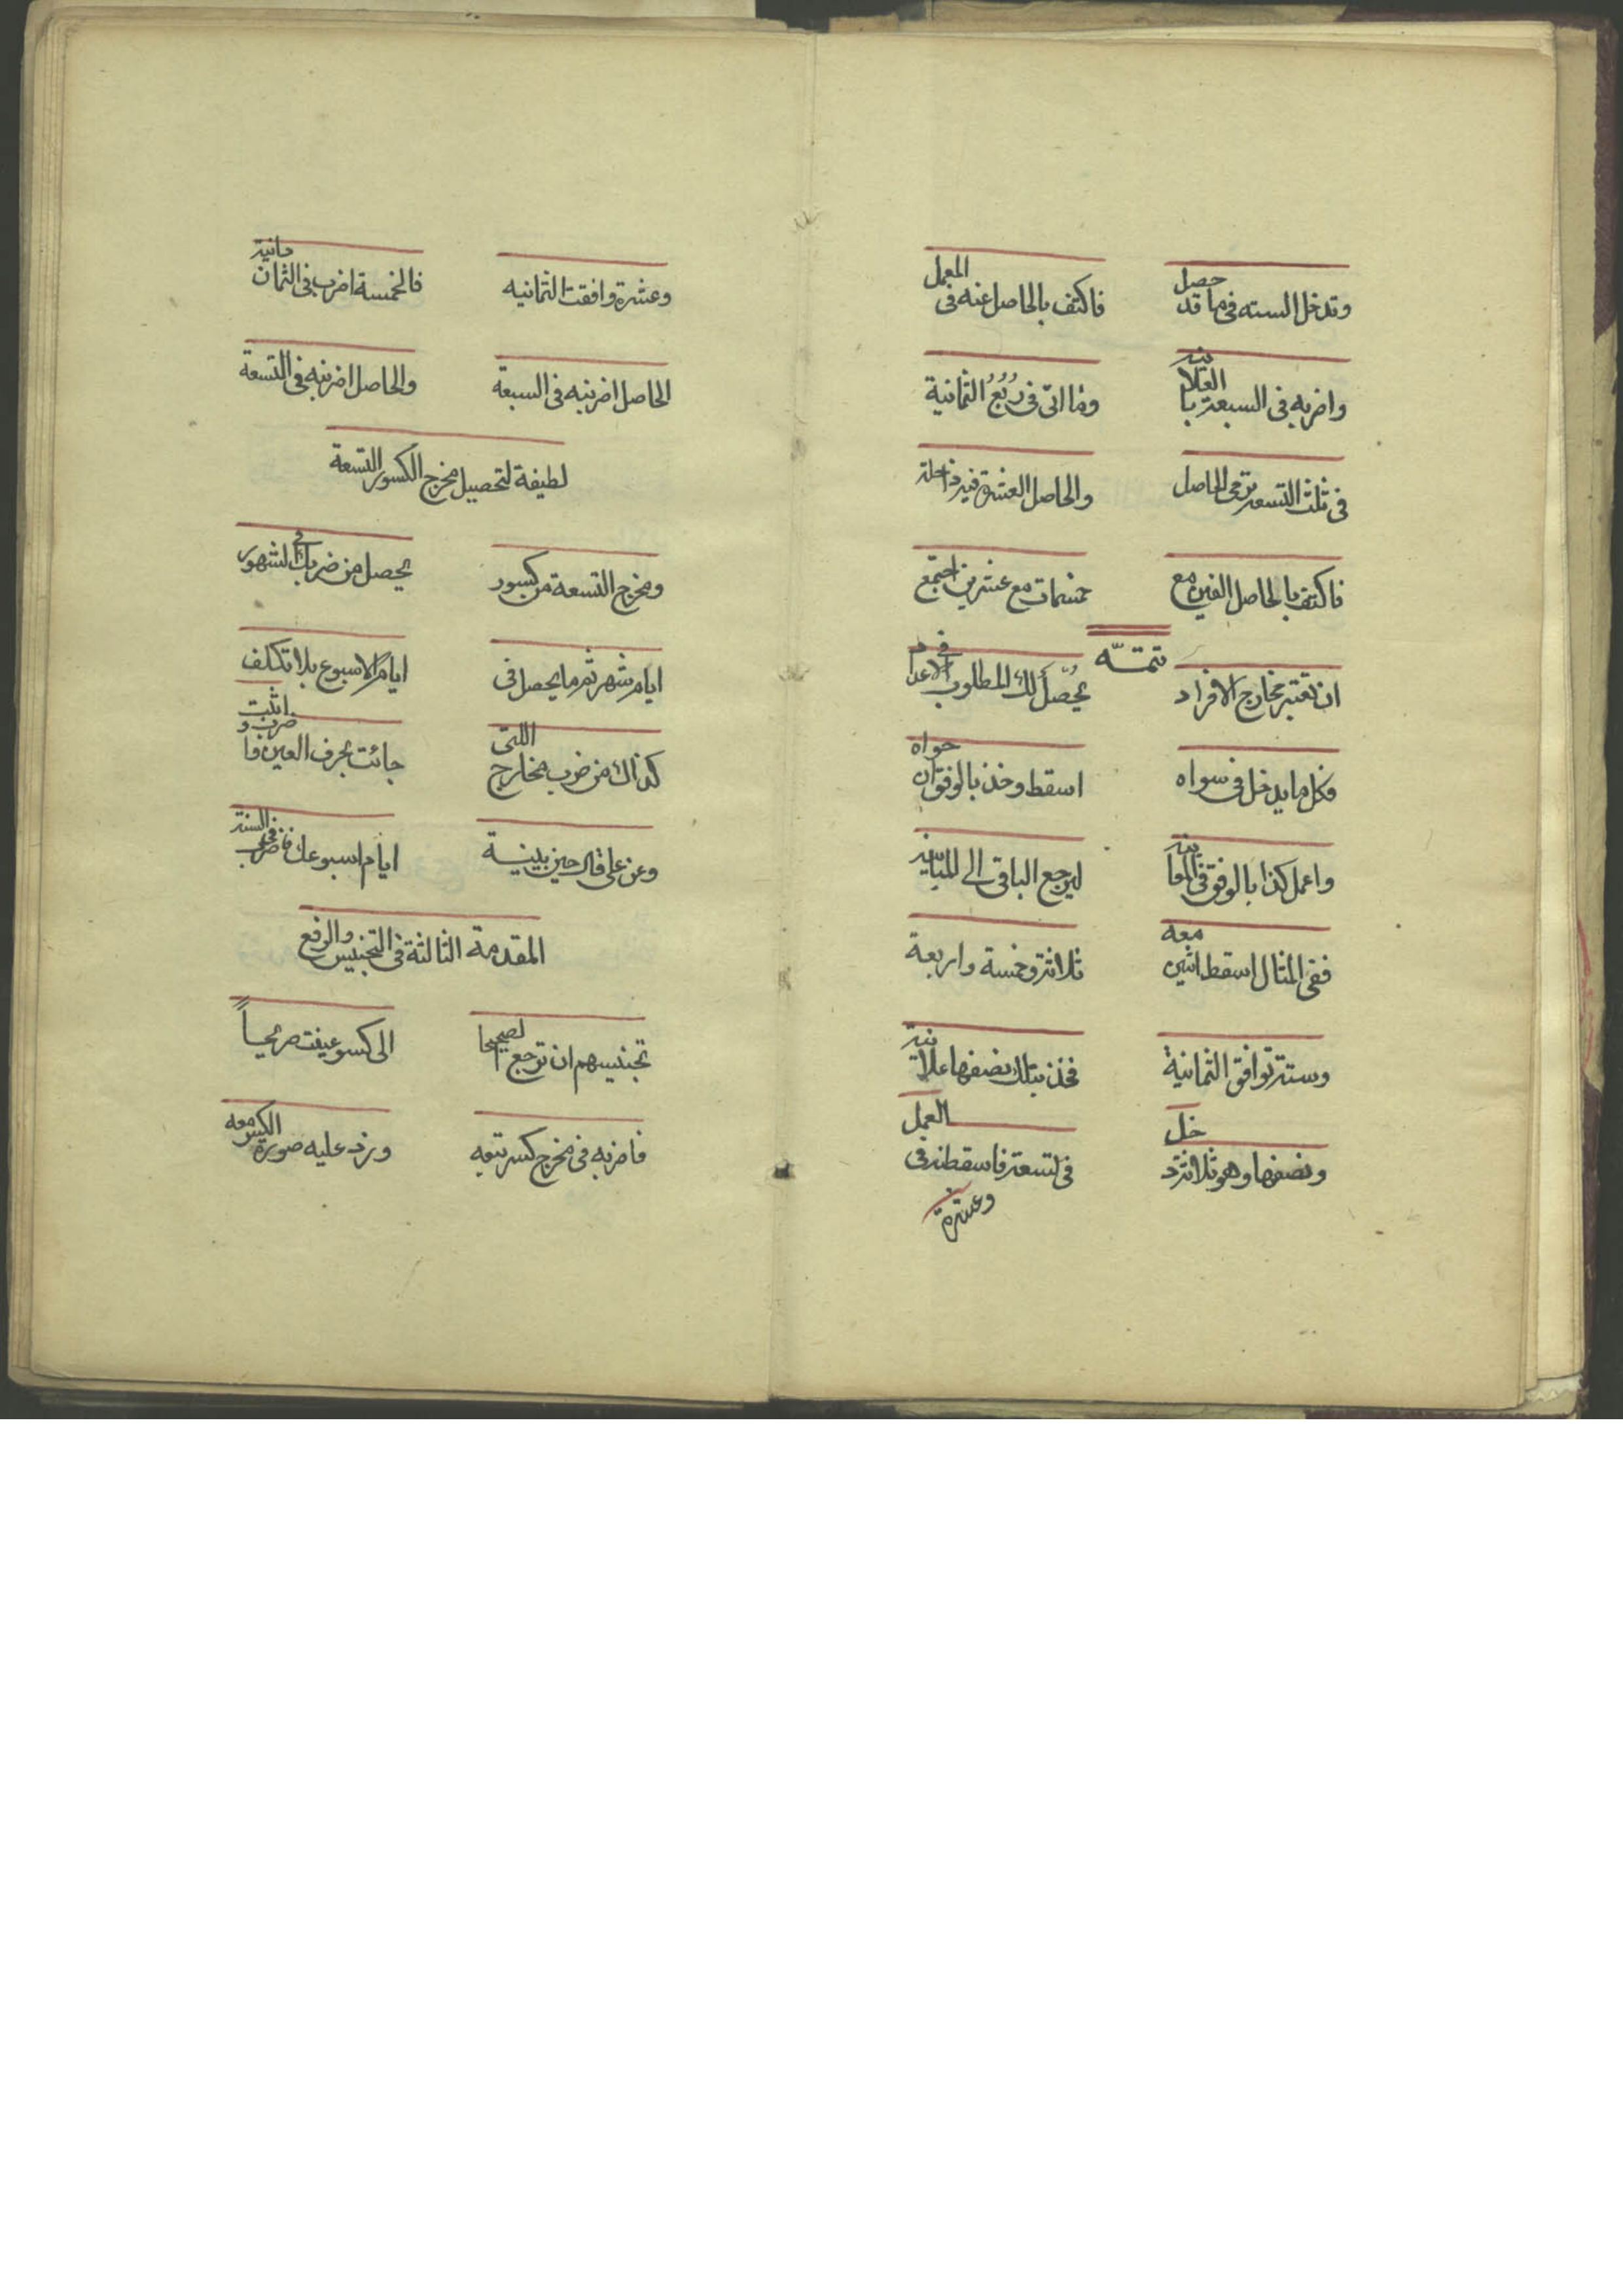 وتدخل السته فى ما قد حصل
فاكتف بالحاصل عنه فى العمل
واضربه فى السبعة بالعلانيه
وما اتى فى ربع الثمانية
فى ثلث التسعة ترقى الحاصل
والحاصل العشرة فيه داخلة
فاكتف بالحاصل الفين مع
خمسمات مع عشرين اجتمع
تتمته
ان تعتبر مخارج الافراد
يحصل لك المطلوب فى الاعداد
فكل ما يدخل فى سواه
اسقط وخذ بالوفق ان حواه
واعمل كذا بالوفق فى المقابنه
ليرجع الباقى الى المباينه
ففى المثال اسقط اثنين معه
ثلاثة وخمسة واربعة
وستة توافق الثمانية
فخذ بتلك نصفها علانية
ونصفها وهو ثلاثة دخل
فى لتسعة فاسقطنه فى العمل
وعشرة
وعشرة وافقت الثمانيه
فالخمسة اضرب فى الثمان مانية
الحاصل اضربنه فى السبعة
والحاصل اضربنه فى التسعة
لطيفة لتحصيل مخرج الكسور التسعة
ومخرج التسعة من كسور
يحصل من ضربك فى الشهور
ايام شهر ثم ما يحصل فى
ايام الاسبوع بلا تكلف
كذاك من ضرب مخارج اللتى
جائت بحرف العين فاضرب واثبت
وعن على قال حين بينة
ايام اسبوعك فاضرب فى السنة
المقدمة الثالثة فى التجنيس والرفع
تجنيسهم ان ترجع الصحيحا
الى كسو عينت صريحاً
فاضربه فى مخرج كسر تتبعه
وزد عليه صورة الكسر معه